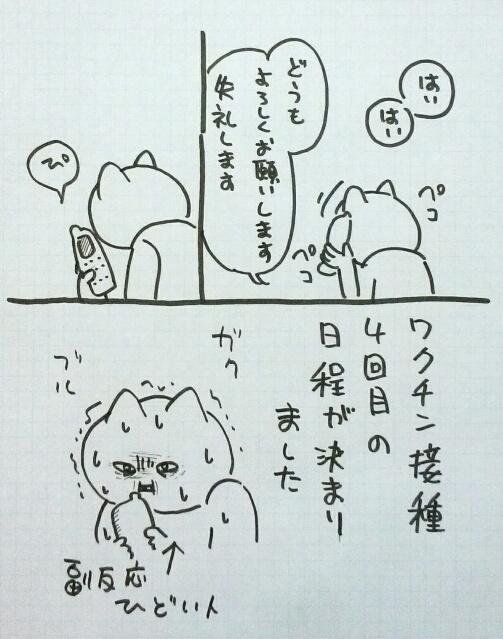 はい
はい
ペコ
ペコ
どうも
よろしくお願いします
失礼します
ぴ
ワクチン接種
4回目の
日程が決まり
ました
ガク
ブル
副反応
ひどい人